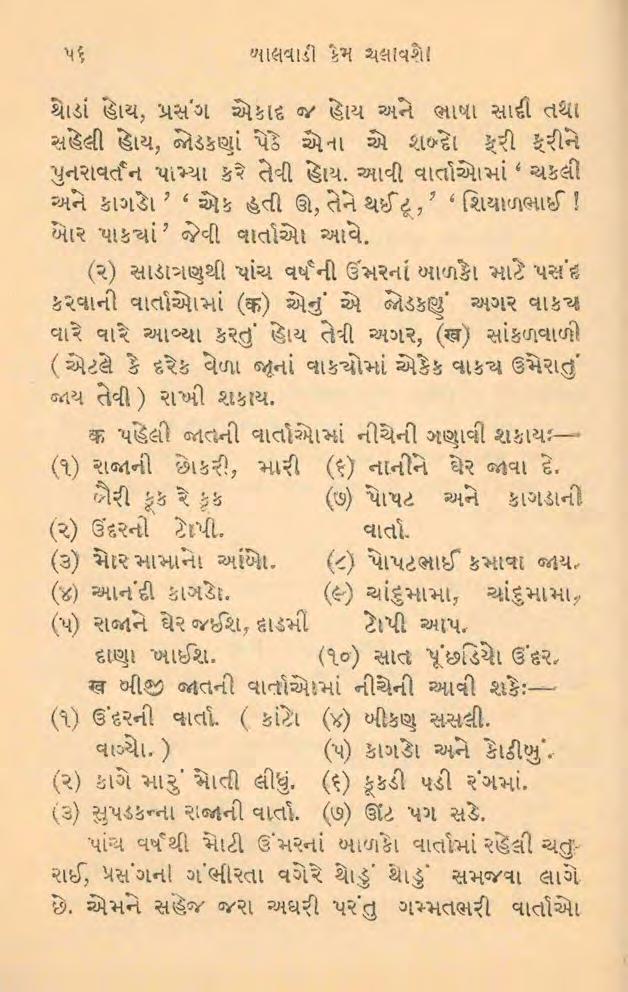 ૫૬ બાલવાડી કેમ ચલાવશો!
થોડાં હોય, પ્રસંગ એકાદ જ હોય અને ભાષા સાદી તથા
સહેલી હોય, જોડકણાં પેઠે એના એ શબ્દો ફરી ફરીને
પુનરાવર્તન પામ્યા કરે તેવી હોય. આવી વાર્તાઓમાં ‘ ચકલી
અને કાગડો ’ ‘ એક હતી ઊ, તેને થઈ ટૂ, ’ ‘ શિયાળભાઈ !
બોર પાક્યાં ’ જેવી વાર્તાઓ આવે.
(૨) સાડાત્રણથી પાંચ વર્ષની ઉંમરનાં બાળકો માટે પસંદ
કરવાની વાર્તાઓમાં (क) એનું એ જોડકણું અગર વાક્ય
વારે વારે આવ્યા કરતું હોય તેવી અગર, (ख) સાંકળવાળી
( એટલે કે દરેક વેળા જૂનાં વાક્યોમાં એકેક વાક્ય ઉમેરાતું
જાય તેવી ) રાખી શકાય.
क પહેલી જાતની વાર્તાઓમાં નીચેની ગણાવી શકાયઃ—
(૧) રાજાની છોકરી, મારી
બૈરી કૂક રે કૂક
(૨) ઉંદરની ટોપી.
(૩) મોરમામાનો આંબો.
(૪) આનંદી કાગડો.
(૫) રાજાને ઘેર જઈશ, દાડમી
દાણા ખાઈશ.
(૬) નાનીને ઘેર જાવા દે.
(૭) પોપટ અને કાગડાની
વાર્તા.
(૮) પોપટભાઈ કમાવા જાય.
(૯) ચાંદુમામા, ચાંદુમામા,
ટોપી આપ.
(૧૦) સાત પૂંછડિયો ઉંદર.
ख બીજી જાતની વાર્તાઓમાં નીચેની આવી શકેઃ—
(૧) ઉંદરની વાર્તા. ( કાંટો
વાગ્યો. )
(૨) કાગે મારું મોતી લીધું.
(૩) સુપડકન્ના રાજાની વાર્તા.
(૪) બીકણ સસલી.
(૫) કાગડો અને કોઠીબું.
(૬) કૂકડી પડી રંગમાં.
(૭) ઊંટ પગ સડે.
પાંચ વર્ષથી મોટી ઉંમરનાં બાળકો વાર્તામાં રહેલી ચતુ-
રાઈ, પ્રસંગની ગંભીરતા વગેરે થોડું થોડું સમજવા લાગે
છે. એમને સહેજ જરા અઘરી પરંતુ ગમ્મતભરી વાર્તાઓ